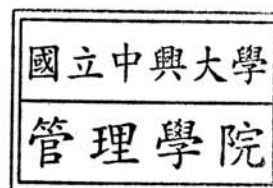 國立中興大學
管理學院